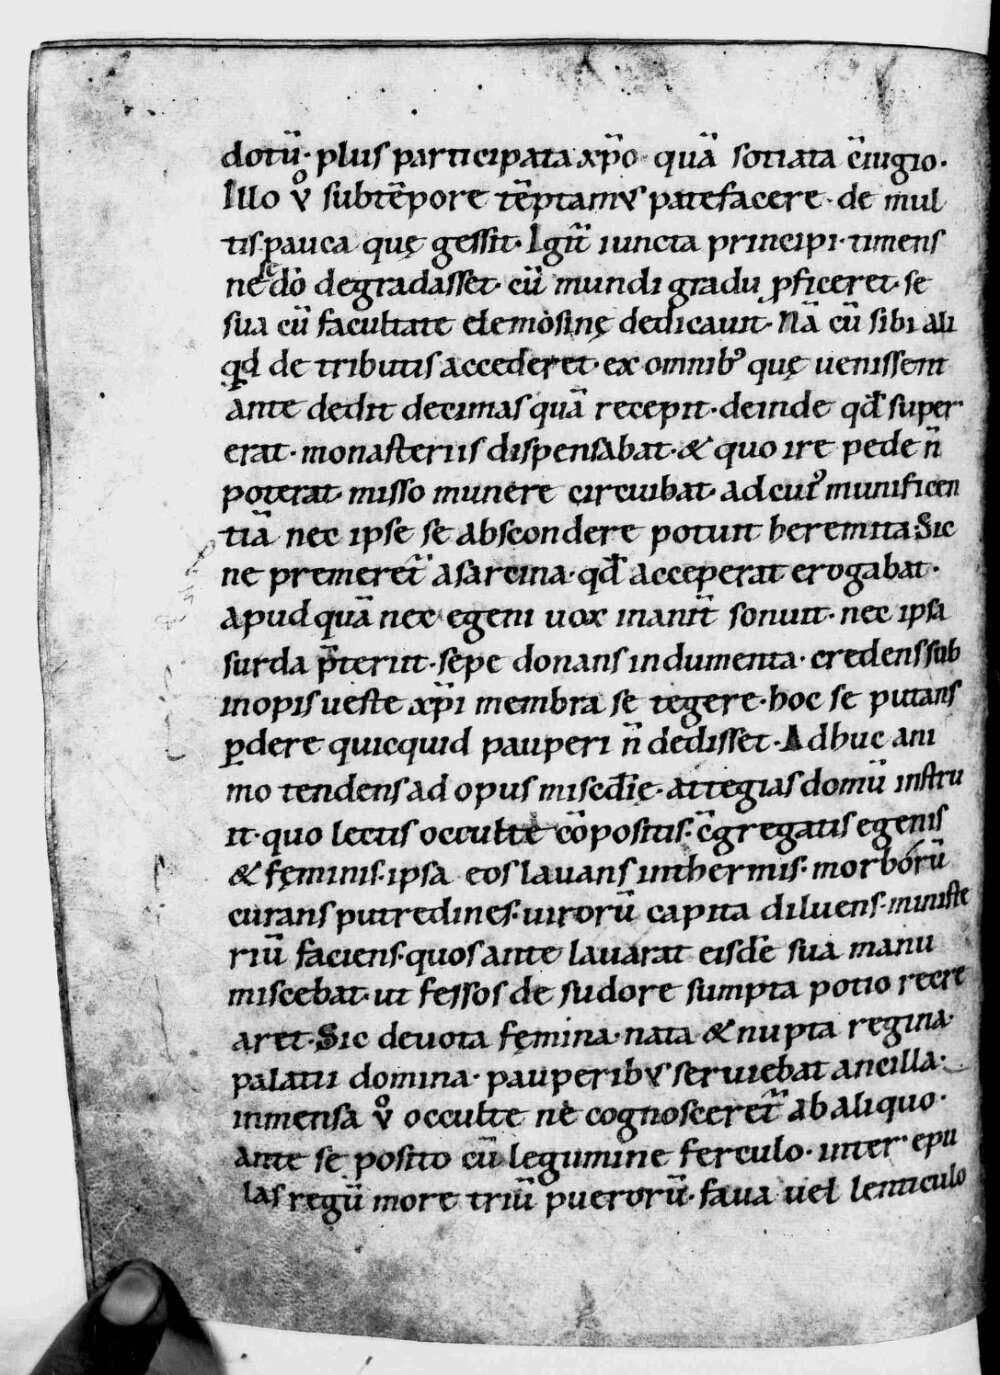 dotū· plus participata xp̄o quā sotiata c̄iugio·
Illo v̊ subtēpore tēptamus patefacere· de mul
tis pauca quę gessit· Igit̄ iuncta principi· timens
ne dō degradasset· cū mundi gradu ꝓficeret· se
sua cū facultate elemosinę dedicauit· Nā cū sibi ali
qd de tributis accederet· ex omnib; quę uenissent
ante dedit decimas quā recepit· deinde qđ super
erat· monasteriis dispensabat· & quo ire pede n̄
poterat· misso munere circuibat· ad cui᾿ munificen
tiā nec ipse se abscondere potuit heremita Sic
ne premeret̄ a sarcina· qđ acceperat erogabat·
apud quā nec egeni uox inanit̄ sonuit· nec ipsa
surda p̄terit· sepe donans indumenta· credens sub
inopis ueste xp̄i membra se tegere· hoc se putans
ꝑdere quicquid pauperi n̄ dedisset· Adhuc ani
mo tendens ad opus misc̄dię· attegias domū instru
it· quo lectis occulte cōpositis· c̄gregatis egenis
& feminis· ipsa eos lauans in thermis· morborū
curans putredines· uirorū capita diluens· ministe
riū faciens· quos ante lauarat eisdē sua manu
miscebat· ut fessos de sudore sumpta potio recre
aret· Sic deuota femina· nata & nupta regina·
palatii domina· pauperibus seruiebat ancilla·
inmensa v̊ occulte ne cognosceret̄ ab aliquo·
ante se posito cū legumine ferculo· inter epu
las regū more triū puerorū· faua uel lenticulo